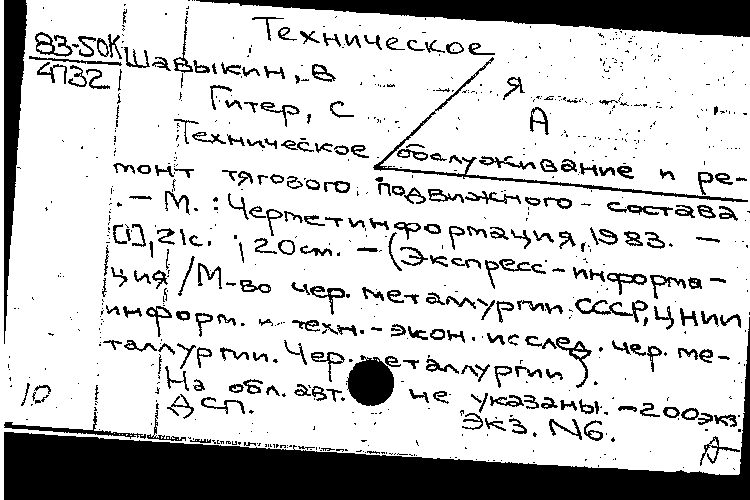 Техническое
83-50К
4732
Шавыкин, В
Гитер, С
я
А
Техническое обслуживание и ре-
монт тягового подвижного состава
. - М. : Черметинформация, 1983. -
[1], 21с. ; 20см. - (Экспресс-информа-
ция / М-во чер. металлургии СССР, ЦНИИ
информ. и техн.-экон. исслед. чер. ме-
таллургии. Чер. металлургии).
На обл. авт. не указаны. - 200экз.
ДСП. Экз. N6.
10